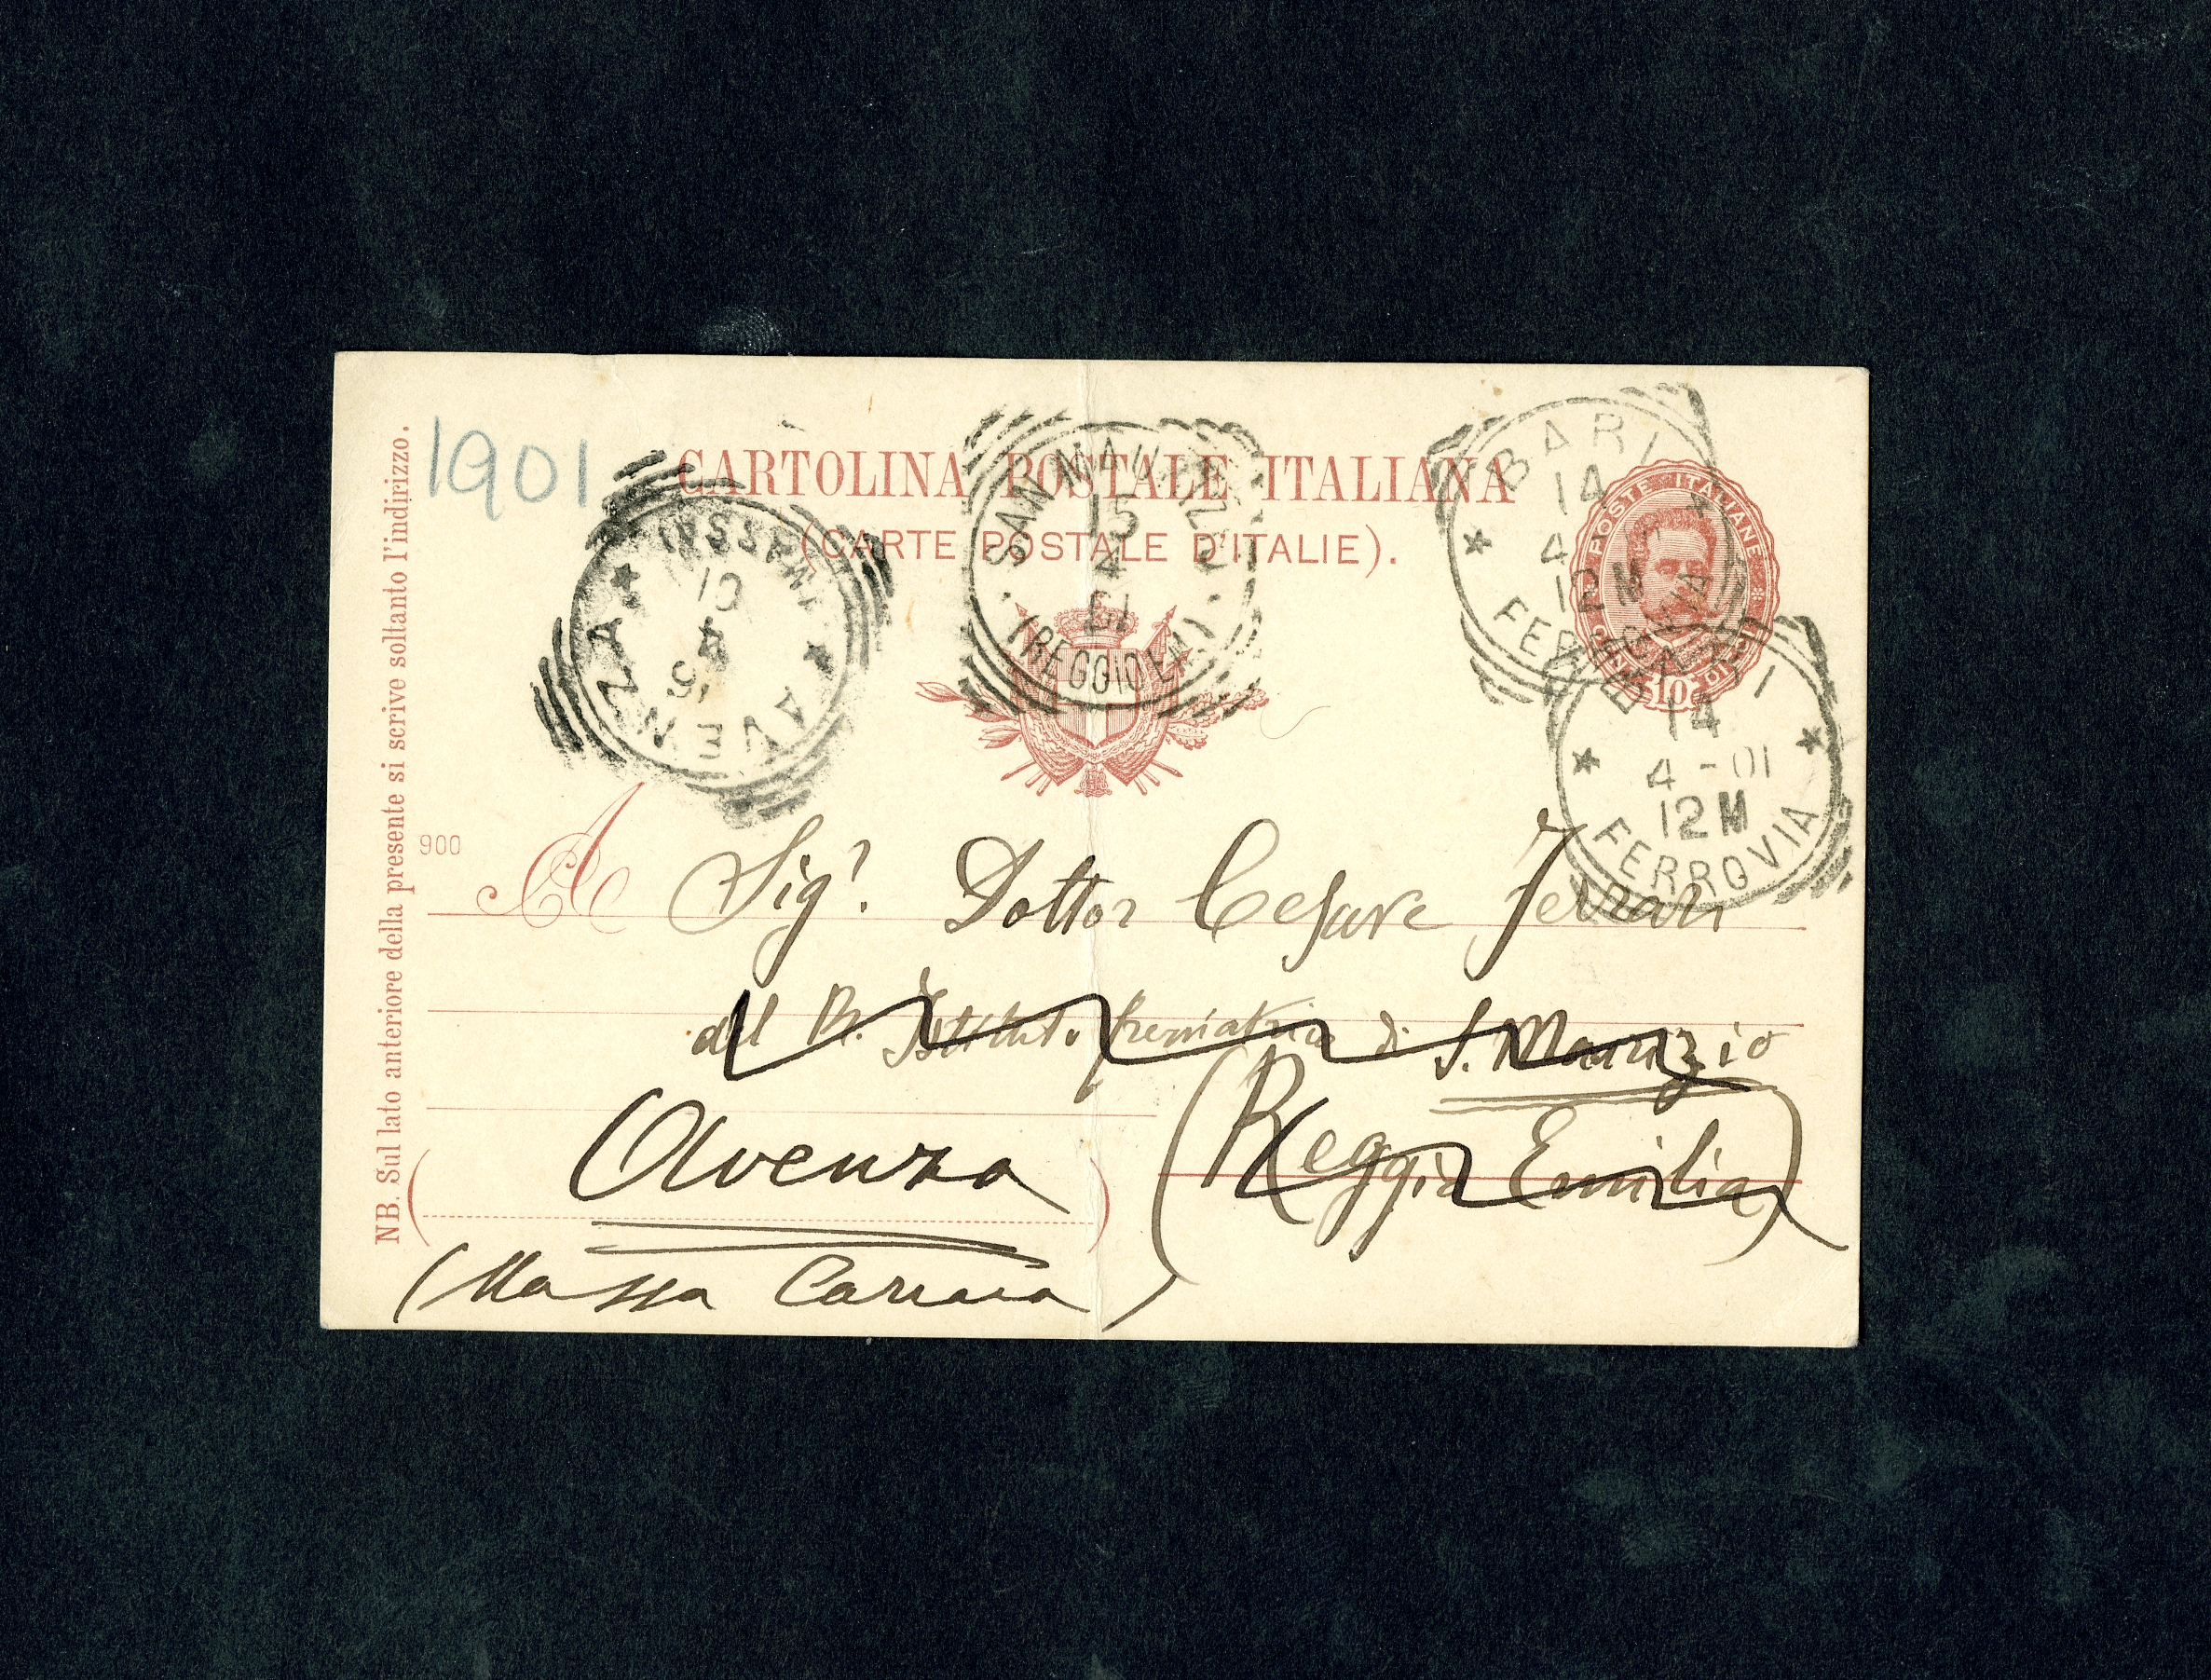 1901
CARTOLINA POSTALE ITALIANA
(CARTE POSTALE D'ITALIE).
NB. Sul lato anteriore della presente si scrive soltanto l'indirizzo.
AVENZA
SAN MAURIZIO
15
4
01
(REGGIO EM.)
BARI
14
4
FERROVIA
POSTE ITALIANE
10
14
4-01
12 M
FERROVIA
900
A Sigr. Dottor Cesare Ferrari
del R. Istituto freniatrico di S. Maurizio
(Reggio Emilia)
Avenza
(Massa Carrara)